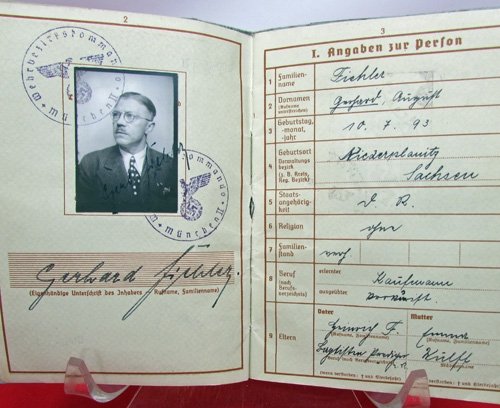 2
Wehrbezirkskommando
München II
Wehrbezirkskommando
München II
Gerhard Fichler
Gerhard Fichler.
(Eigenhändige Unterschrift des Inhabers Rufname, Familienname)
3
I. Angaben zur Person
1 Familien-name Fichler
2 Vornamen (Rufname unterstreichen) Gerhard, August
3 Geburtstag, -monat, -jahr 10. 7. 93
4 Geburtsort Verwaltungsbezirk (z. B. Kreis, Reg. Bezirk) Niederplanitz Sachsen
5 Staats-angehörig-keit D. R.
6 Religion
7 Familien-stand verh
8 Beruf (nach Berufs-verzeichnis) erlernter Kaufmann
ausgeübter
9 Eltern Vater Mutter
F. Emma
(Rufname, Familienname)